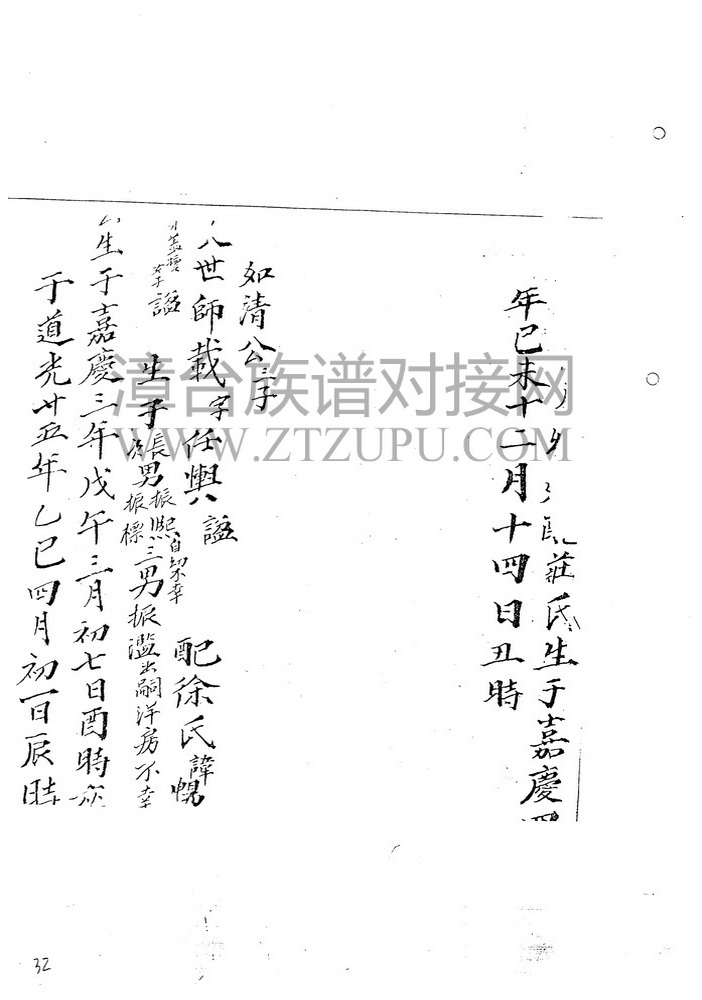 莊氏生于嘉慶
年已未十二月十四日丑時
如清公三子
八世師載字任輿謚 配徐氏諱
謚 生子長男振熙自幼幸三男振濫出嗣洋房不幸
次男振標
生于嘉慶三年戊午三月初七日酉時
于道光廿五年乙巳四月初一日辰時
漳台族谱对接网
WWW.ZTZUPU.COM
32